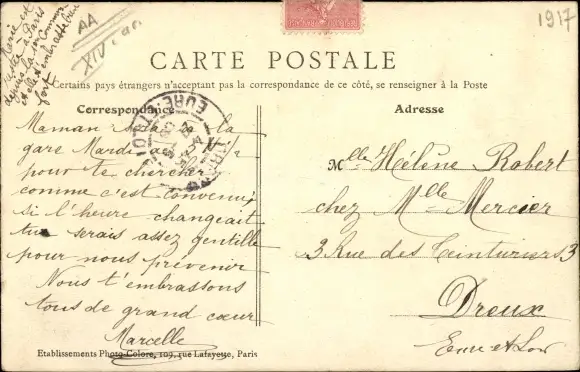 1917
AA
XIV arr
Marie est
à Paris
fort
CARTE POSTALE
Certains pays étrangers n'acceptant pas la correspondance de ce côté, se renseigner à la Poste
Correspondance
Adresse
Maman sera à la
gare Mardi
pour te chercher
comme c'est convenu,
si l'heure changeait
tu serais assez gentille
pour nous prévenir
Nous t'embrassons
tous de grand cœur
Marcelle
Mlle Hélène Robert
chez Mlle Mercier
3 Rue des Teinturiers 3
Dreux
Eure et Loir
Etablissements Photo-Colore, 109, rue Lafayette, Paris